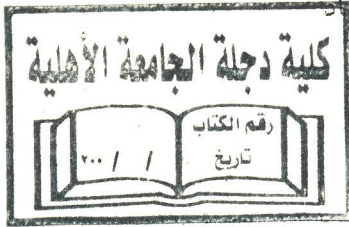 كلية دجلة الجامعة الأهلية
رقم الكتاب
تاريخ / / ٢٠٠